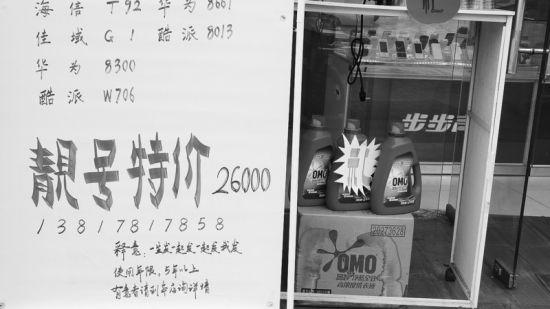 海信 T92 华为 8661
佳域 G1 酷派 8013
华为 8300
酷派 W706
靓号特价 26000
13817817858
释意：一生发一起发一起发我发
使用年限，5年以上
有意者请到本店询详情
步步高
OMO
OMO